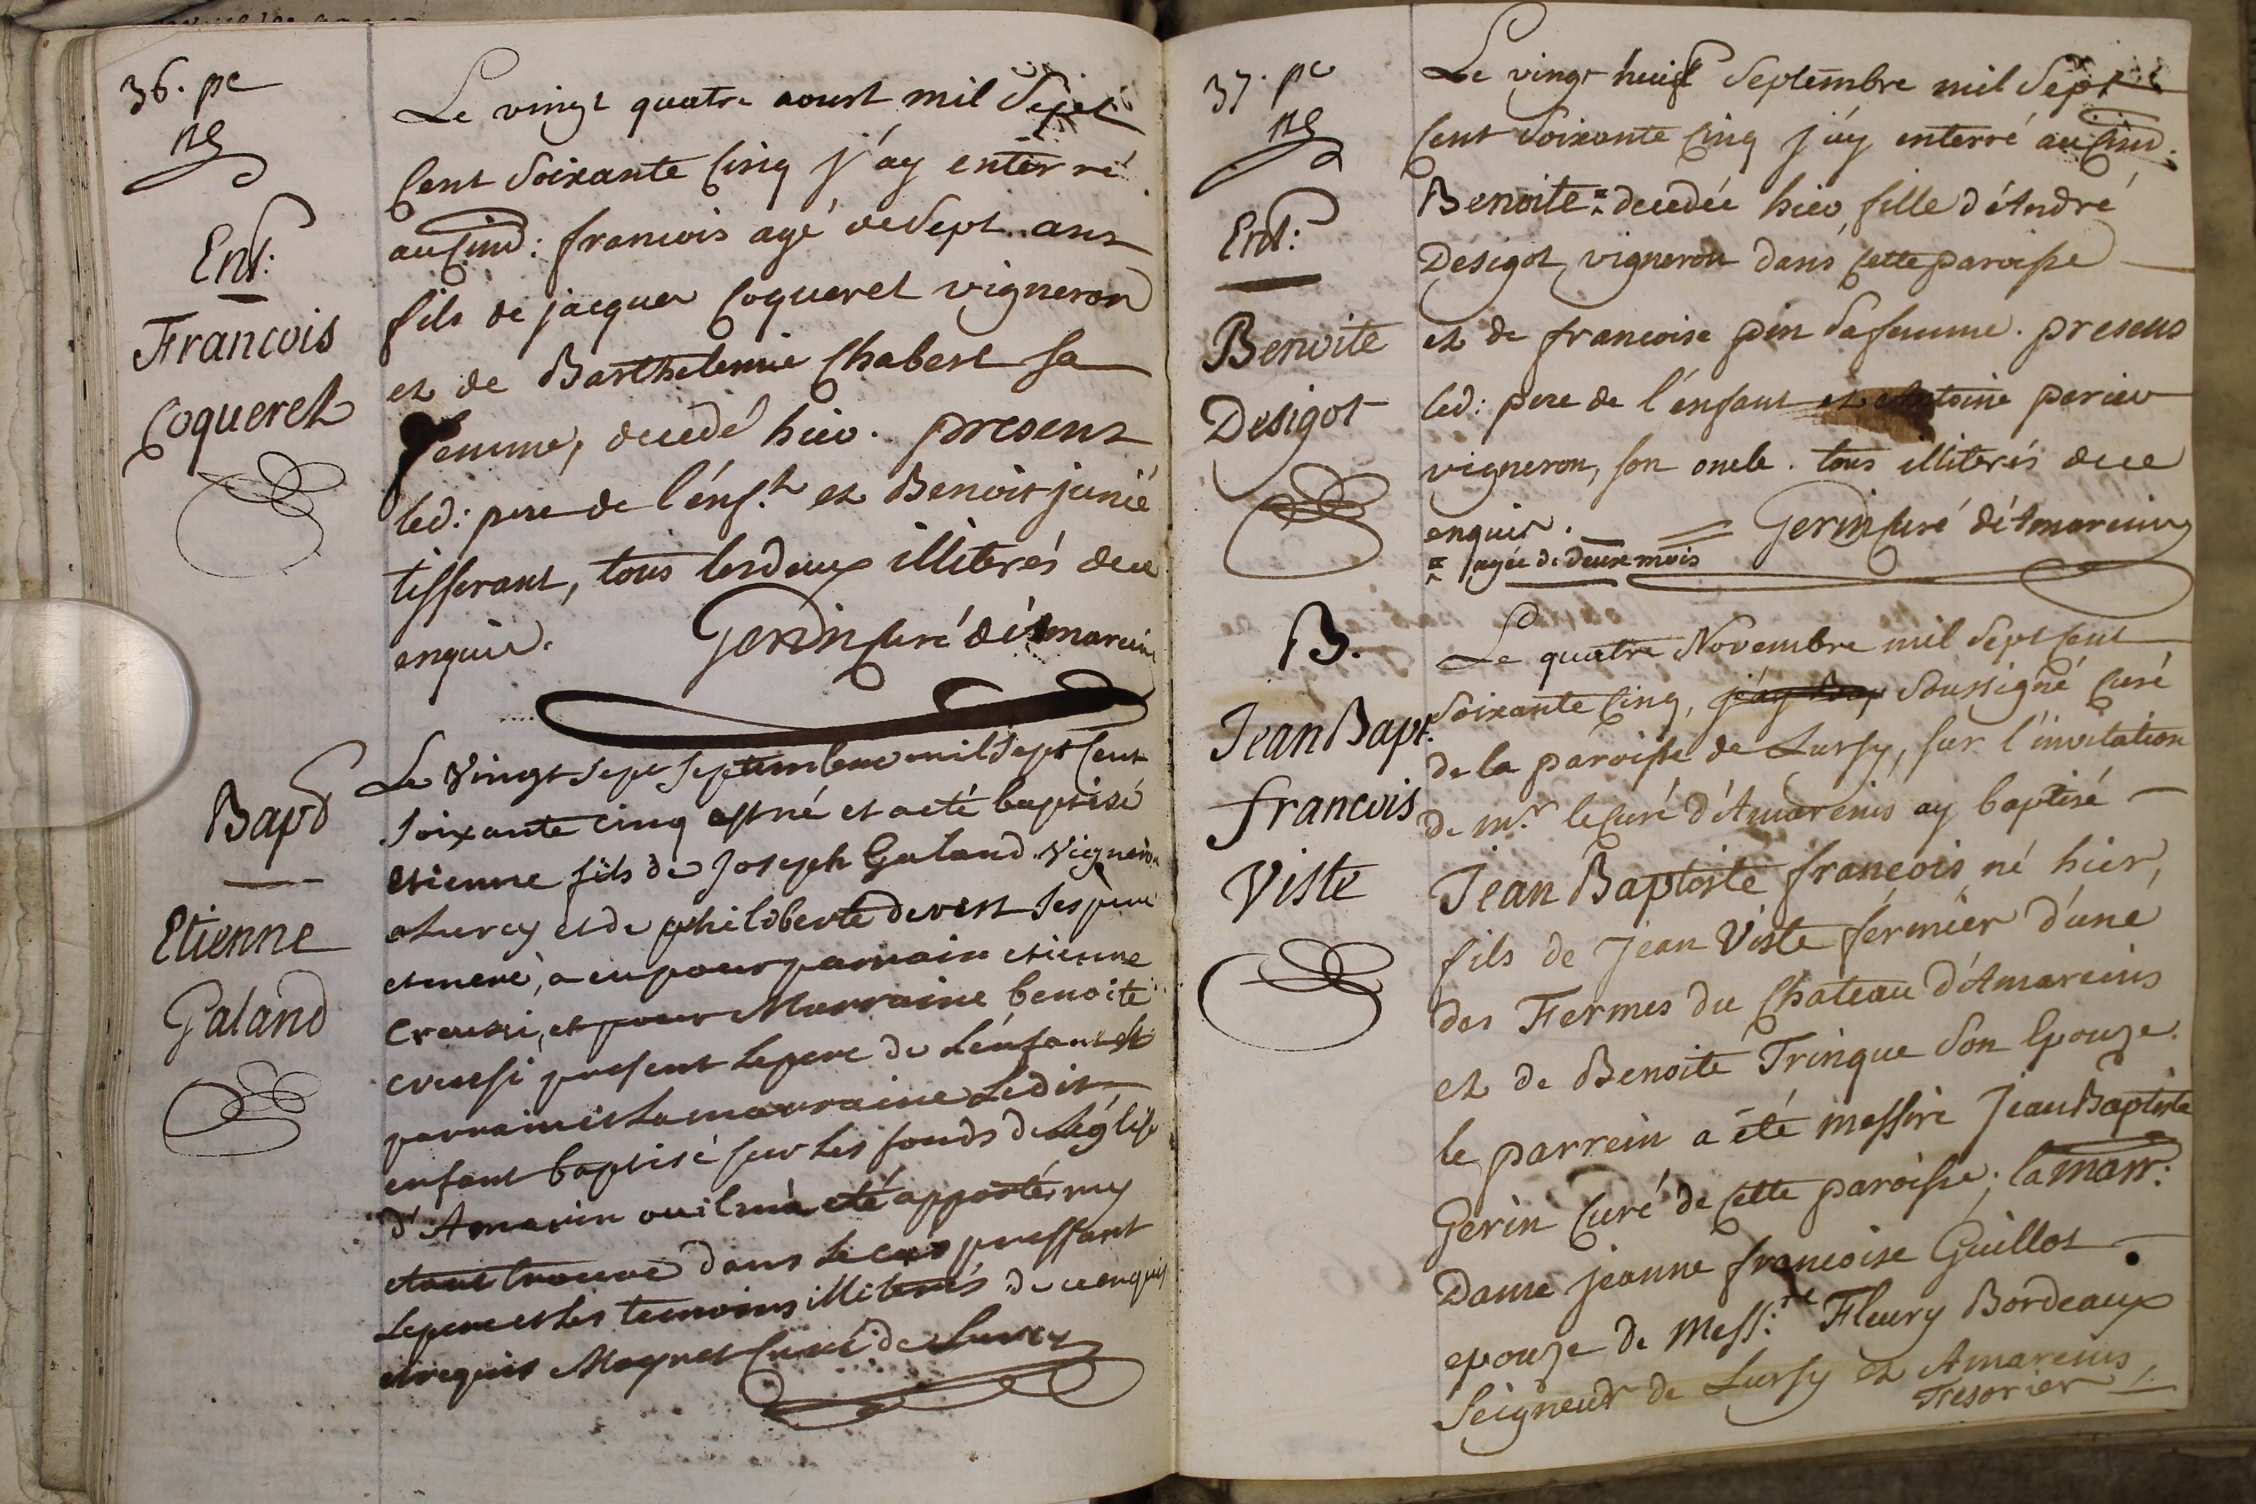 36. pe
Ent:
Francois
Coqueret
Le vingt quatre aoust mil Sept
Cent Soixante Cinq j'ay enterré
au Cim: francois agé de Sept ans
fils de jacques Coqueret vigneron
et de Barthelemie Chabert sa
femme, decedé hier. presents
led: pere de l'énf.t et Benoit junié
tisserant, tous les deux illiterés de ce
enquis. Gerin Curé d'Amareins
Bapt
Etienne
Galand
Le Vingt sept septembre mil sept Cent
soixante cinq est né et a eté baptisé
etienne fils de Joseph Galand Vigneron
a Lurcy et de philiberte devert ses pere
et mere, a eu pour parrain etienne
creussi, et pour Marraine benoite
creussi present Le pere de L'énfant et
parrain et La marraine Ledit
enfant baptisé sur Les fonds de L'églize
d'Amarin ou il m'a eté apporté, m'y
etant trouvé dans Le cas pressant
Le pere et Les temoins illiterés de ce enquis
et requis Moynet Curé de Lurcy
37. pe
Ent:
Benoite
Desigot
Le vingt huit Septembre mil Sept
Cent Soixante Cinq j'ay enterré au Cim.
Benoite = decedée hier fille d'André
Desigot, vigneron dans Cette paroisse
et de francoise pin Sa femme. presens
led: pere de l'énfant et Antoine perier
vigneron, son oncle. tous illiterés de ce
enquis. = Gerin Curé d'Amareins
= agée de deux mois
B.
Jean Bapt.
francois
Viste
Le quatre Novembre mil Sept Cent
Soixante Cinq, j'ay Bap Soussigné Curé
de la paroisse de Lursy, sur l'invitation
de m.r le Curé d'Amareins ay baptisé
Jean Baptiste francois né hier,
fils de Jean Viste férmier d'une
des Fermes du Chateau d'Amareins
et de Benoite Trinque Son Epouze.
le parrein a été messire Jean Baptiste
Gerin Curé de Cette paroisse; la marr:
Dame jeanne francoise Guillot
epouze de Mess:re Fleury Bordeaux
Seigneur de Lursy et Amareins,
Tresorier